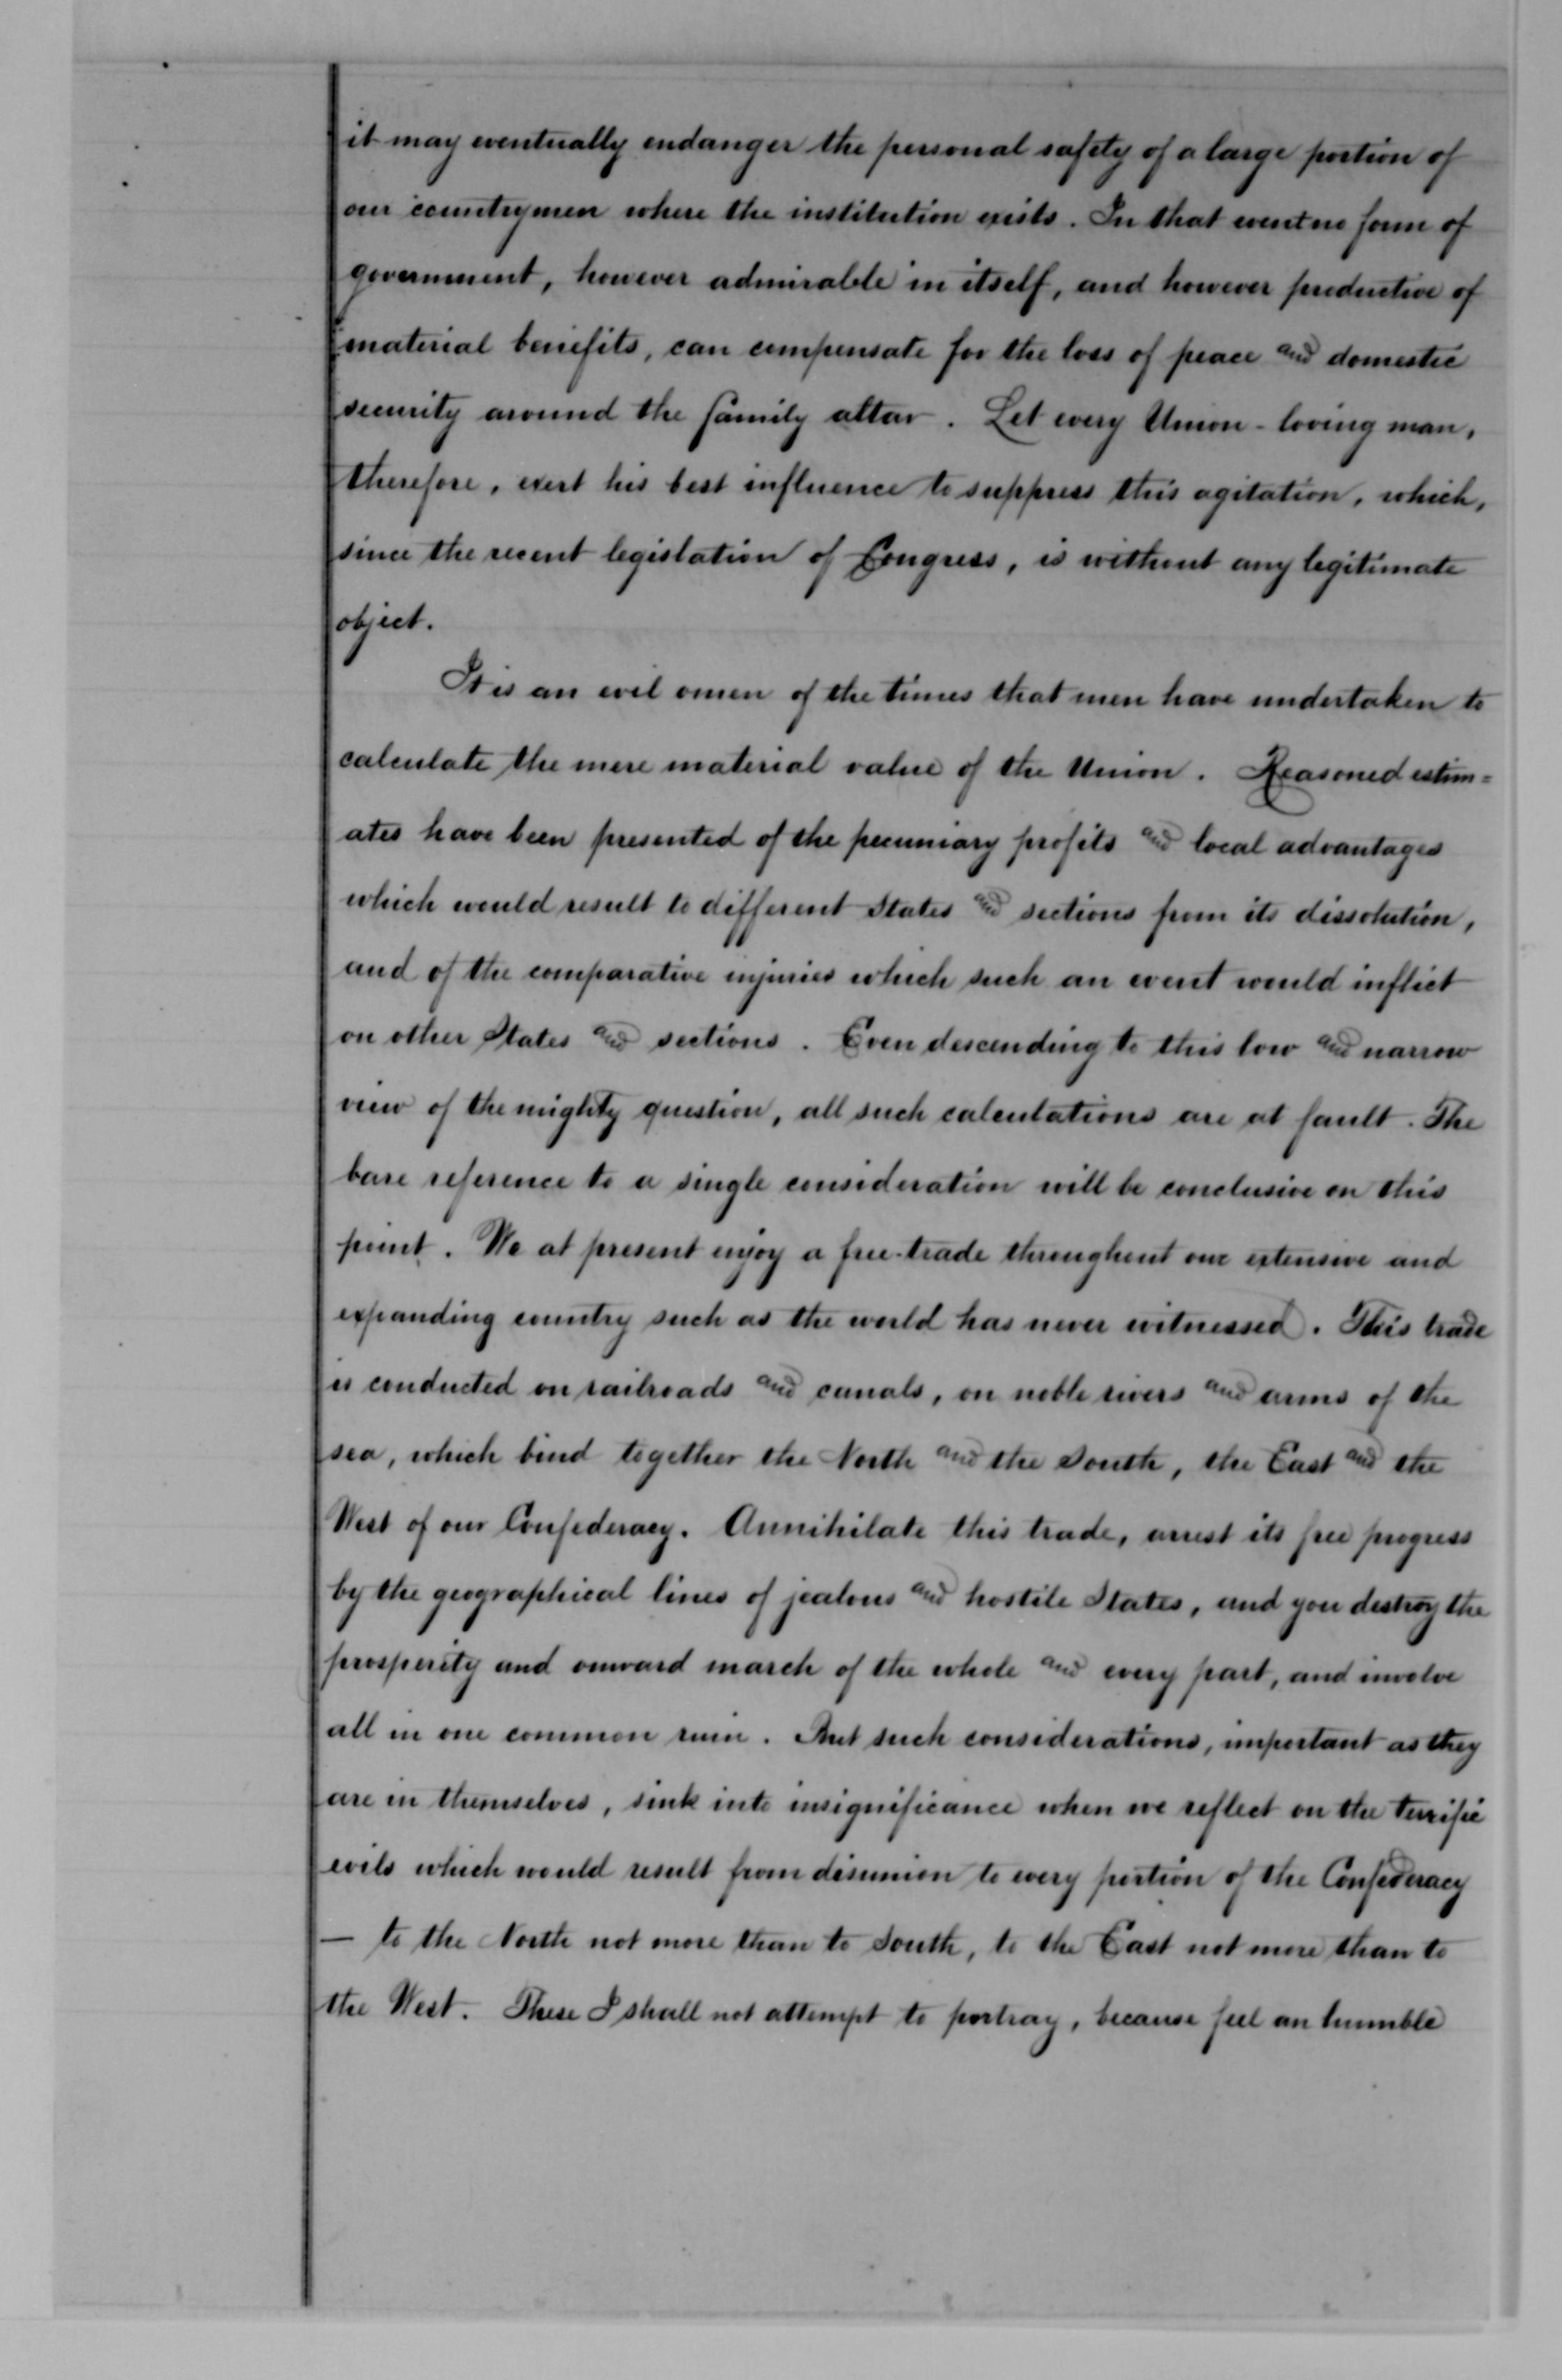 it may eventually endanger the personal safety of a large portion of
our countrymen where the institution exists. In that event no form of
government, however admirable in itself, and however productive of
material benefits, can compensate for the loss of peace and domestic
security around the family altar. Let every Union-loving man,
therefore, exert his best influence to suppress this agitation, which,
since the recent legislation of Congress, is without any legitimate
object.
It is an evil omen of the times that men have undertaken to
calculate the mere material value of the Union. Reasoned estim=
ates have been presented of the pecuniary profits and local advantages
which would result to different States and sections from its dissolution,
and of the comparative injuries which such an event would inflict
on other States and sections. Even descending to this low and narrow
view of the mighty question, all such calculations are at fault. The
bare reference to a single consideration will be conclusive on this
point. We at present enjoy a free-trade throughout our extensive and
expanding country such as the world has never witnessed. This trade
is conducted on railroads and canals, on noble rivers and arms of the
sea, which bind together the North and the South, the East and the
West of our Confederacy. Annihilate this trade, arrest its free progress
by the geographical lines of jealous and hostile States, and you destroy the
prosperity and onward march of the whole and every part, and involve
all in one common ruin. But such considerations, important as they
are in themselves, sink into insignificance when we reflect on the terrific
evils which would result from disunion to every portion of the Confederacy
— to the North not more than to South, to the East not more than to
the West. These I shall not attempt to portray, because feel an humble